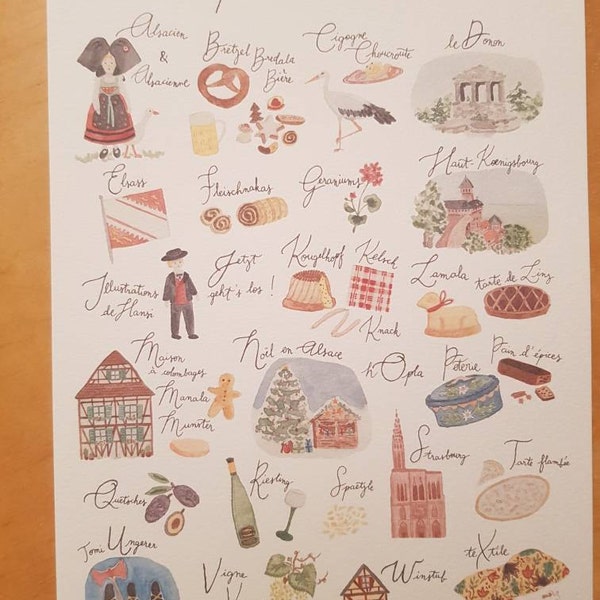 Alsacien
&
Alsacienne
Bretzel Bredala
Bière
Cigogne
Choucroute
le Donon
Elsass
Fleischnakas
Geraniums
Haut-Kœnigsbourg
Illustrations
de Hansi
Jetzt
geht's los !
Kougelhopf
Kelsch
Knack
Lamala
tarte de Linz
Maison
à colombages
Manala
Munster
Noël en Alsace
hOpla
Poterie
Pain d'épices
Quetsches
Riesling
Spaëtzle
Strasbourg
Tarte flambée
Tomi Ungerer
Vigne
Winstub
teXtile